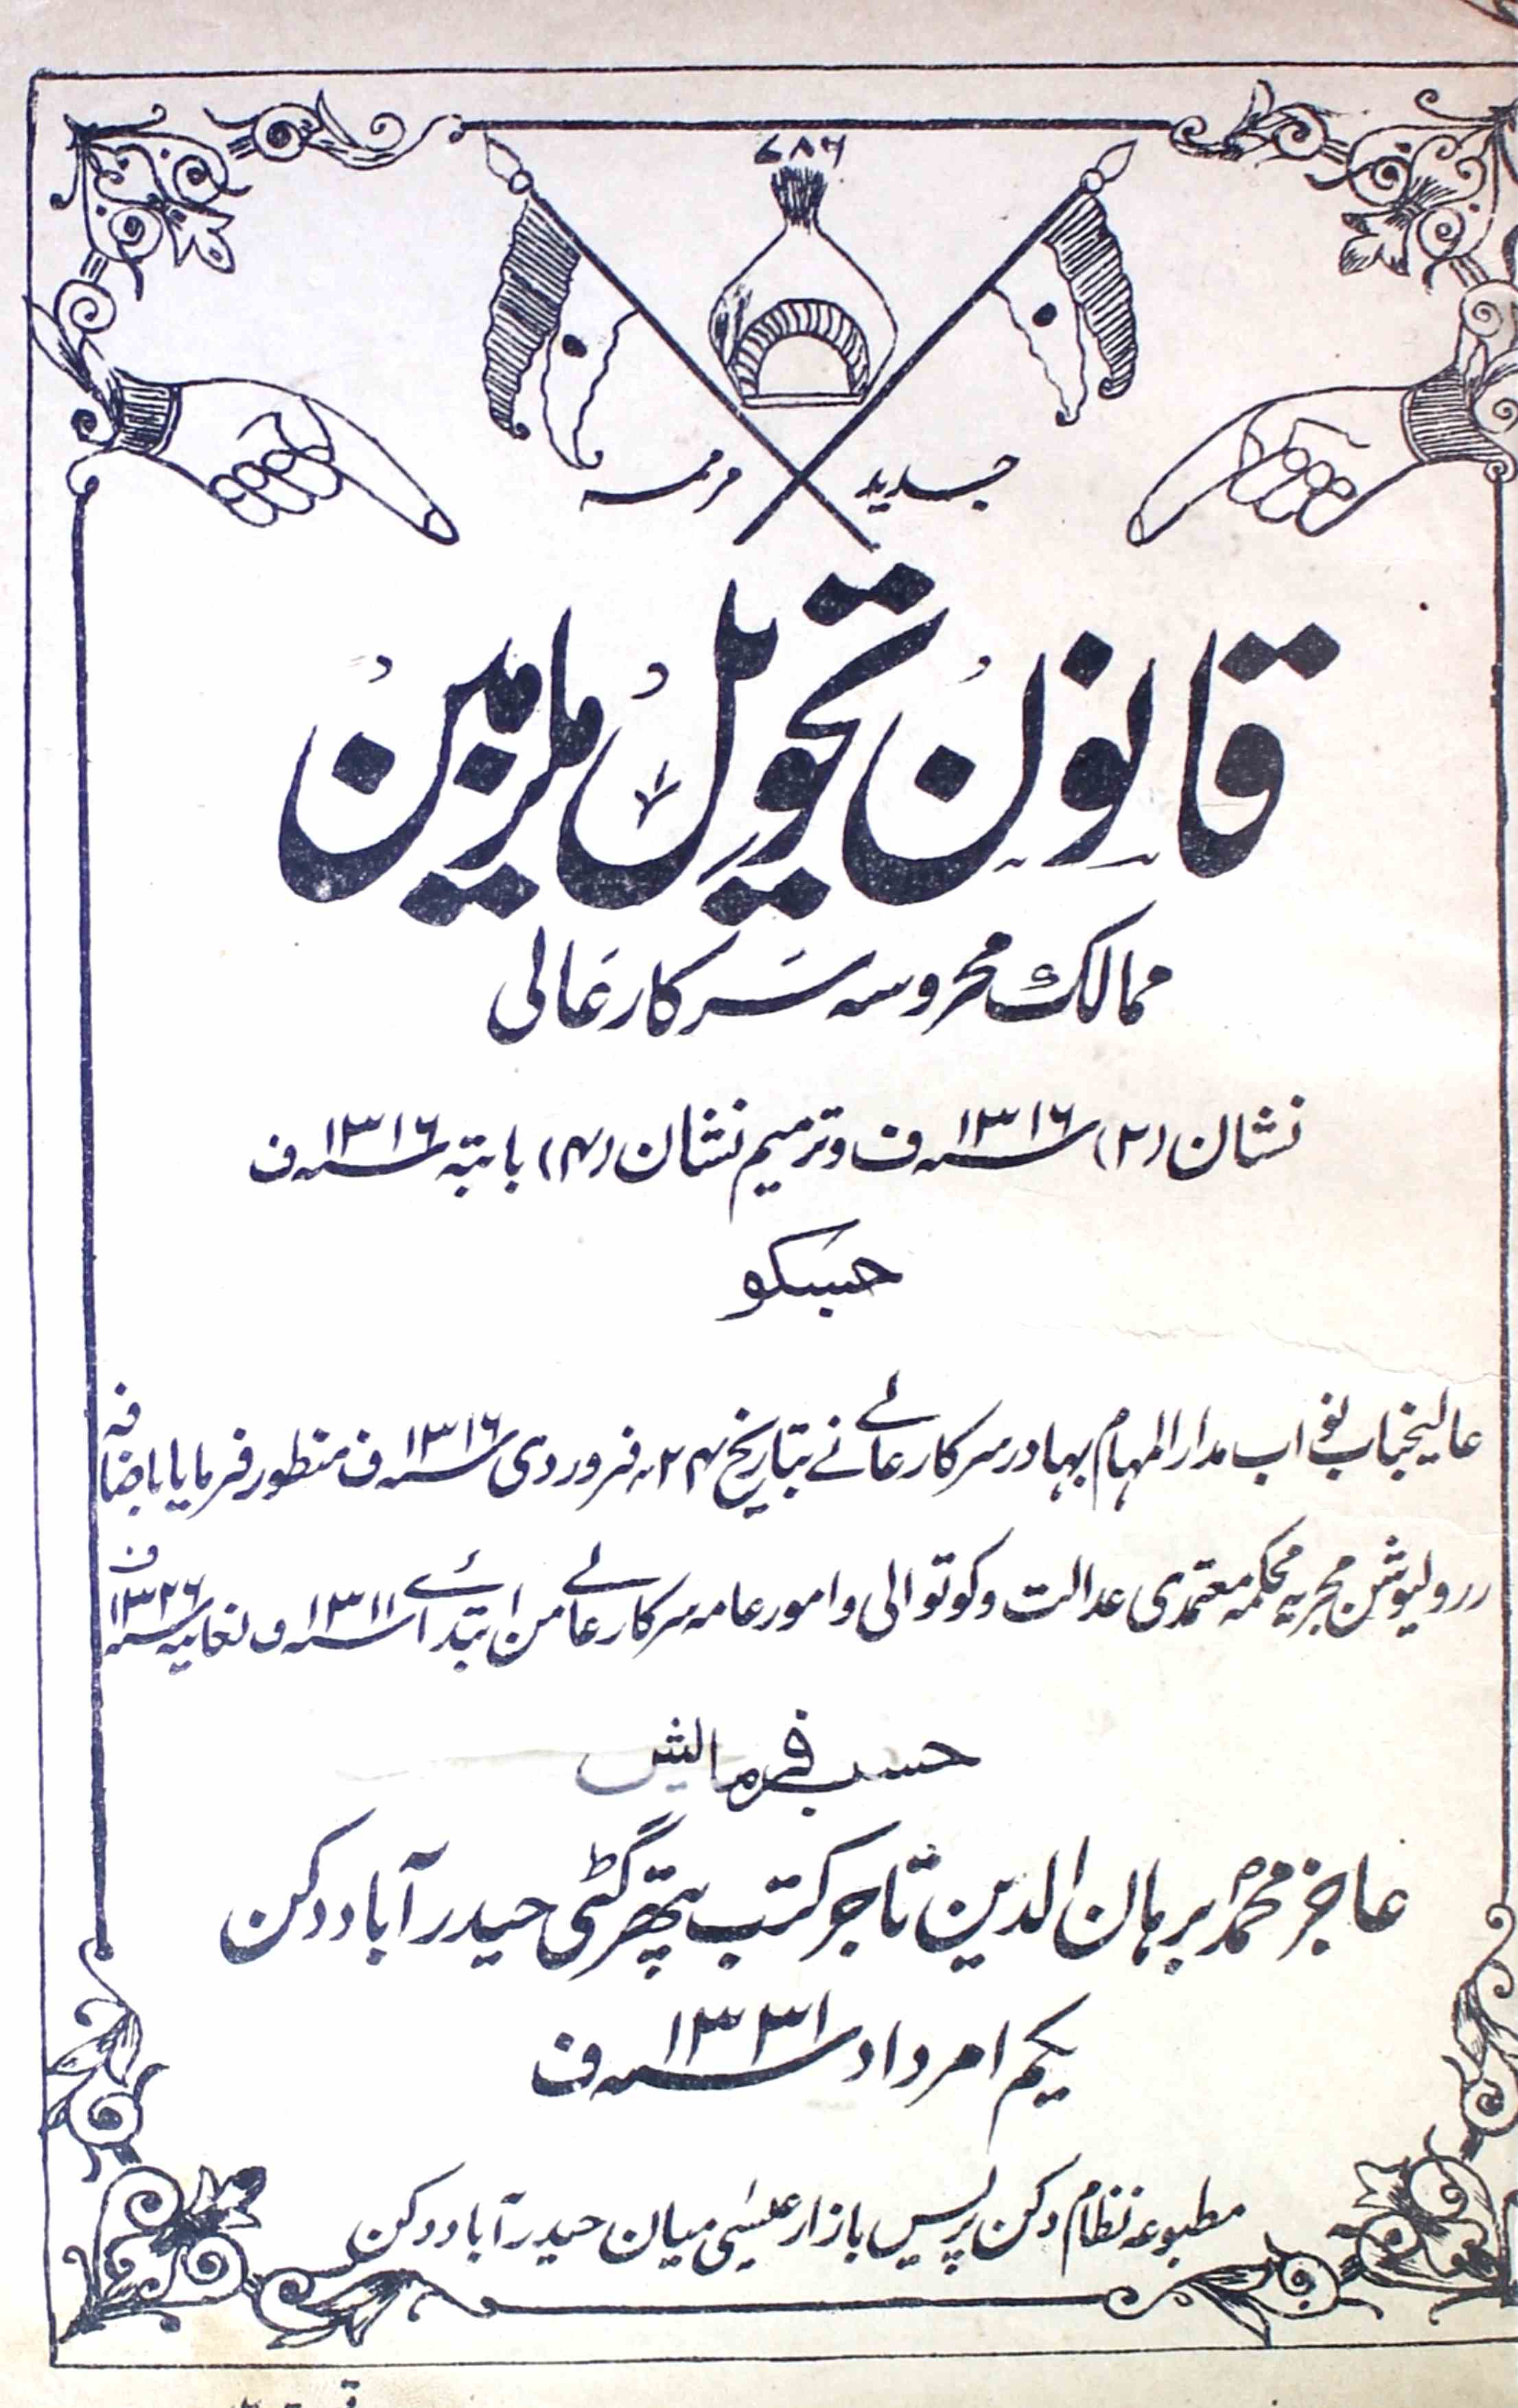 ۷۸۶
جدید مرممہ
قانون تحویل ملزمین
ممالک محروسہ سرکار عالی
نشان (۲) ۱۳۱۶ سنہ ف وترمیم نشان (۴) بابتہ ۱۳۱۶ سنہ ف
جسکو
عالیجناب نواب مدارالمہام بہادر سرکار عالی نے بتاریخ ۲۴ فروردی ۱۳۱۶ سنہ ف منظور فرمایا باضافہ
رزولیوشن مجریہ محکمہ معتمدی عدالت وکوتوالی وامور عامہ سرکار عالی من ابتدائے ۱۳۱۱ سنہ ف لغایتہ ۱۳۲۶ سنہ ف
حسب فرمایش
عاجز محمد برہان الدین تاجر کتب پتھر گٹی حیدرآباد دکن
یکم امرداد ۱۳۳۱ سنہ ف
مطبوعہ نظام دکن پریس بازار عیسٰی میان حیدرآباد دکن